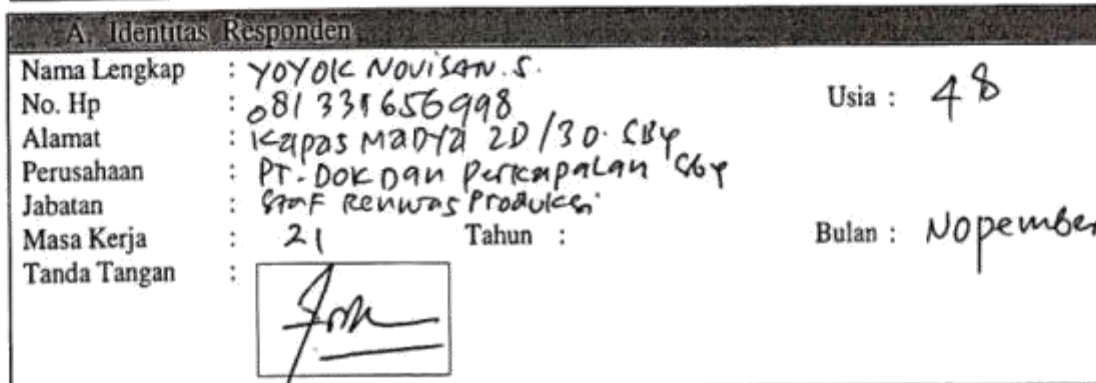 A. Identitas Responden
Nama Lengkap : YOYOK NOVISAN. S.
No. Hp : 081331656998 Usia : 48
Alamat : Kapas MADYA 2D/30. SBY
Perusahaan : PT. DOK DAN PerkapaLan SBY
Jabatan : STAF Renwas Produksi
Masa Kerja : 21 Tahun : Bulan : Nopember
Tanda Tangan :